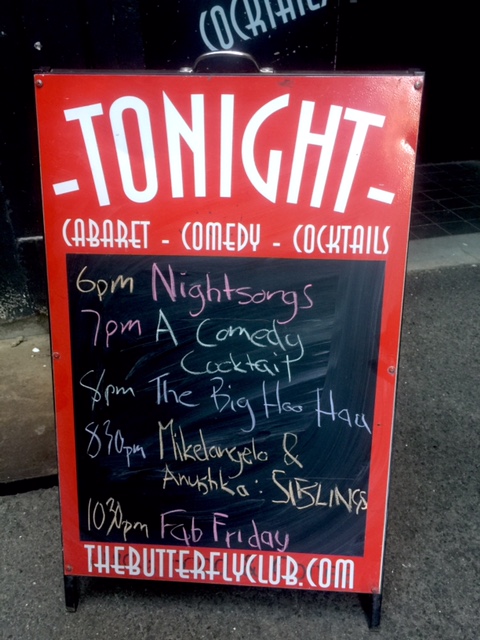 COCKTAILS
-TONIGHT-
CABARET - COMEDY - COCKTAILS
6pm Nightsongs
7pm A Comedy
Cocktail
8pm The Big Hoo Haa
830pm Mikelangelo &
Anushka: SIBLINGS
1030pm Fab Friday
THEBUTTERFLYCLUB.COM